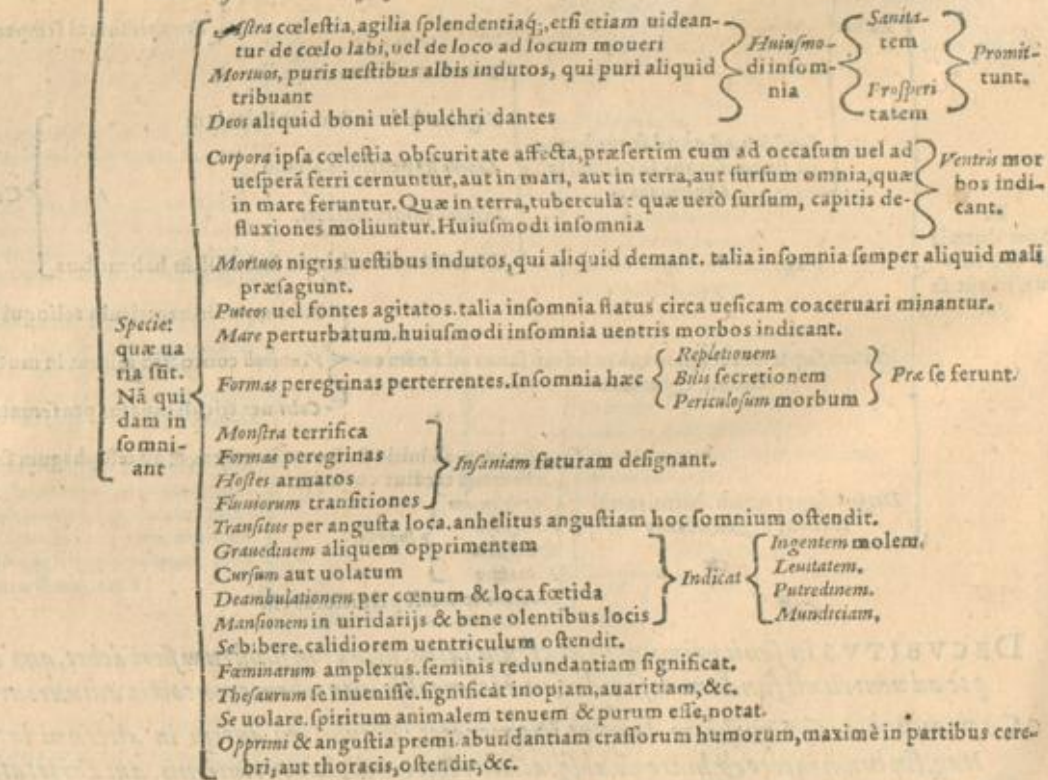 Astra cœlestia, agilia splendentiaq;, etsi etiam uidean-
tur de cœlo labi, uel de loco ad locum moueri
Mortuos, puris uestibus albis indutos, qui puri aliquid
tribuant
Deos aliquid boni uel pulchri dantes
Huiusmo-
di insom-
nia
Sanita-
tem
Prosperi
tatem
Promit-
tunt.
Corpora ipsa cœlestia obscuritate affecta, præsertim cum ad occasum uel ad
uesperã ferri cernuntur, aut in mari, aut in terra, aut sursum omnia, quæ
in mare feruntur. Quæ in terra, tubercula: quæ uerò sursum, capitis de-
fluxiones moliuntur. Huiusmodi insomnia
Ventris mor
bos indi-
cant.
Mortuos nigris uestibus indutos, qui aliquid demant. talia insomnia semper aliquid mali
præsagiunt.
Puteos uel fontes agitatos. talia insomnia flatus circa uesicam coaceruari minantur.
Mare perturbatum. huiusmodi insomnia uentris morbos indicant.
Species
quæ ua
ria sũt.
Nã qui
dam in
somni-
ant
Formas peregrinas perterrentes. Insomnia hæc
Repletionem
Bilis secretionem
Periculosum morbum
Præ se ferunt.
Monstra terrifica
Formas peregrinas
Hostes armatos
Fluuiorum transitiones
Insaniam futuram designant.
Transitus per angusta loca. anhelitus angustiam hoc somnium ostendit.
Grauedinem aliquem opprimentem
Cursum aut uolatum
Deambulationem per cœnum & loca fœtida
Mansionem in uiridarijs & bene olentibus locis
Indicat
Ingentem molem.
Leuitatem.
Putredinem.
Mundiciam.
Se bibere. calidiorem uentriculum ostendit.
Fœminarum amplexus. seminis redundantiam significat.
Thesaurum se inuenisse. significat inopiam, auaritiam, &c.
Se uolare. spiritum animalem tenuem & purum esse, notat.
Opprimi & angustia premi. abundantiam crassorum humorum, maximè in partibus cere-
bri, aut thoracis, ostendit, &c.